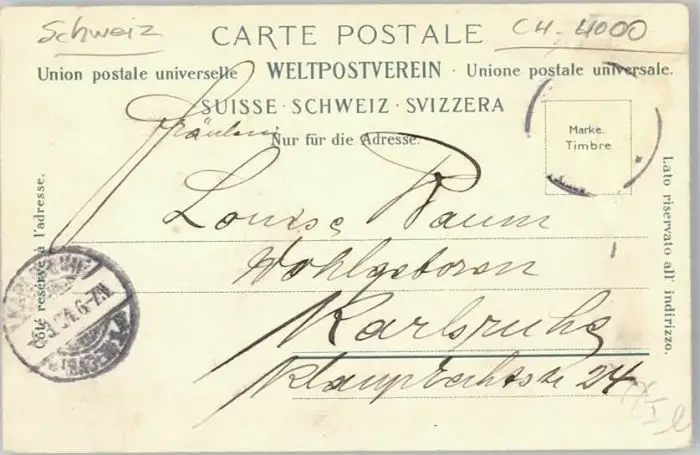 Schweiz
CH-4000
CARTE POSTALE
Union postale universelle · WELTPOSTVEREIN · Unione postale universale.
SUISSE · SCHWEIZ · SVIZZERA
Fräulein
Nur für die Adresse.
Marke.
Timbre
Louise Baum
Wohlgeboren
Karlsruhe
24
Côté réservé à l'adresse.
Lato riservato all' indirizzo.